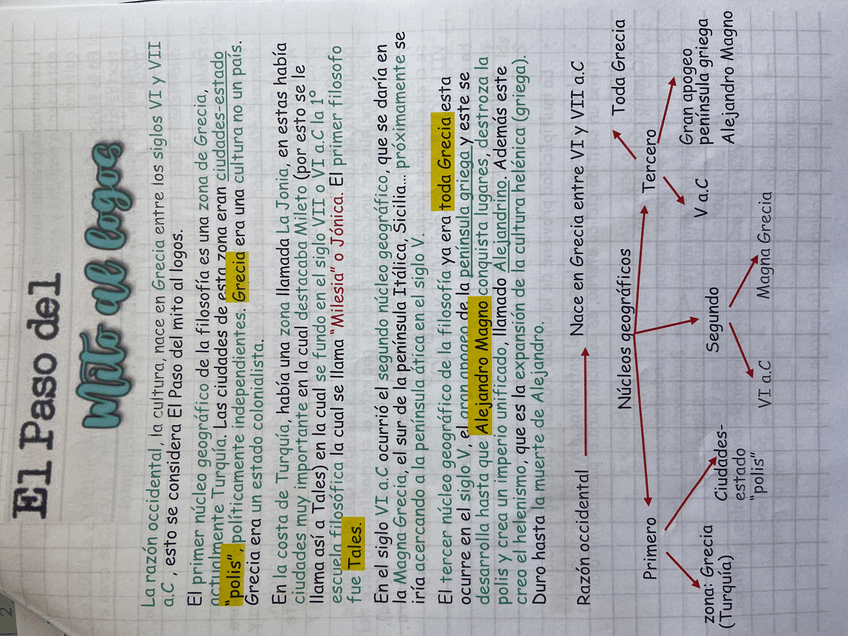 2
El Paso del
Mito al logos
La razón occidental, la cultura, nace en Grecia entre los siglos VI y VII
a.C , esto se considera El Paso del mito al logos.
El primer núcleo geográfico de la filosofía es una zona de Grecia,
actualmente Turquía. Las ciudades de esta zona eran ciudades-estado
“polis”, políticamente independientes. Grecia era una cultura no un país.
Grecia era un estado colonialista.
En la costa de Turquía, había una zona llamada La Jonia, en estas había
ciudades muy importante en la cual destacaba Mileto (por esto se le
llama así a Tales) en la cual se fundo en el siglo VII o VI a.C la 1º
escuela filosófica la cual se llama “Milesia” o Jónica. El primer filosofo
fue Tales.
En el siglo VI a.C ocurrió el segundo núcleo geográfico, que se daría en
la Magna Grecia, el sur de la península Itálica, Sicilia... próximamente se
iría acercando a la península ática en el siglo V.
El tercer núcleo geográfico de la filosofía ya era toda Grecia, esta
ocurre en el siglo V, el gran apogeo de la península griega y este se
desarrolla hasta que Alejandro Magno conquista lugares, destroza la
polis y crea un imperio unificado, llamado Alejandrino. Además este
creo el helenismo, que es la expansión de la cultura helénica (griega).
Duro hasta la muerte de Alejandro.
Razón occidental Nace en Grecia entre VI y VII a.C
Núcleos geográficos
Primero Segundo Tercero
zona: Grecia
(Turquía)
Ciudades-
estado
“polis”
VI a.C
Magna Grecia
V a.C
Toda Grecia
Gran apogeo
península griega
Alejandro Magno